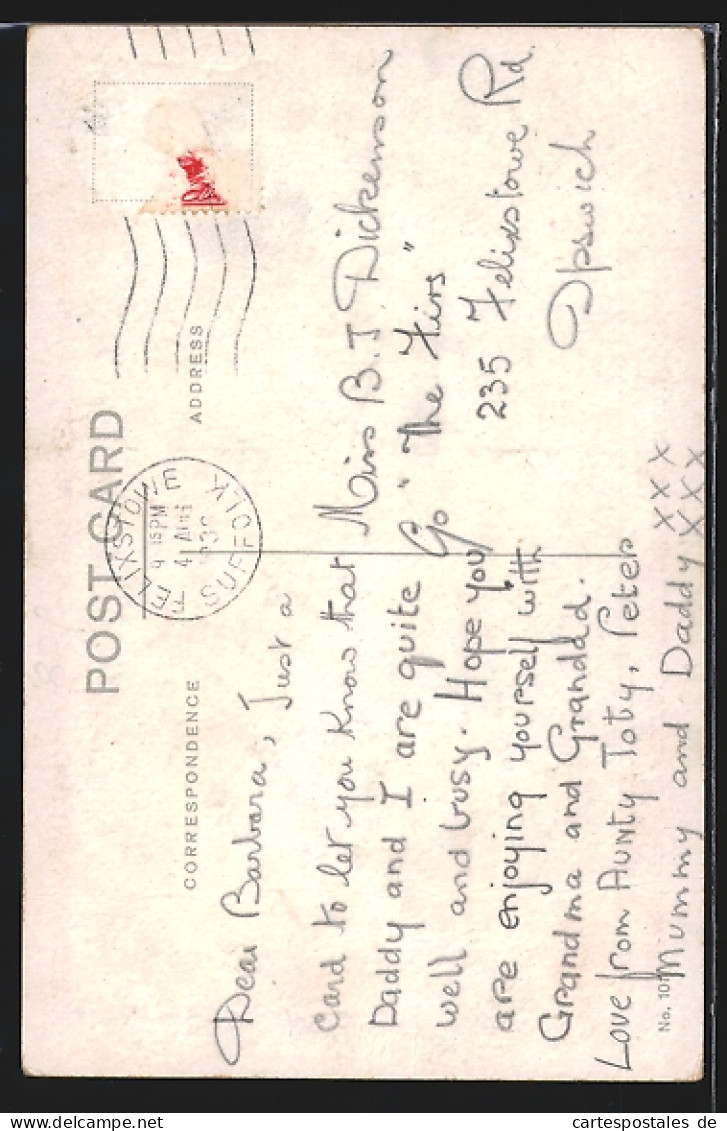 POST CARD
CORRESPONDENCE
ADDRESS
FELIXSTOWE
SUFFOLK
4 AUG
Dear Barbara, Just a
card to let you know that
Daddy and I are quite
well and busy. Hope you
are enjoying yourself with
Grandma and Grandad.
Love from Aunty Toty, Peter
Mummy and Daddy XXX
XXX
Miss B. J Dickenson
C/o "The Firs"
235 Felixstowe Rd.
Ipswich
No. 101
www.cartespostales.de
cartespostales de